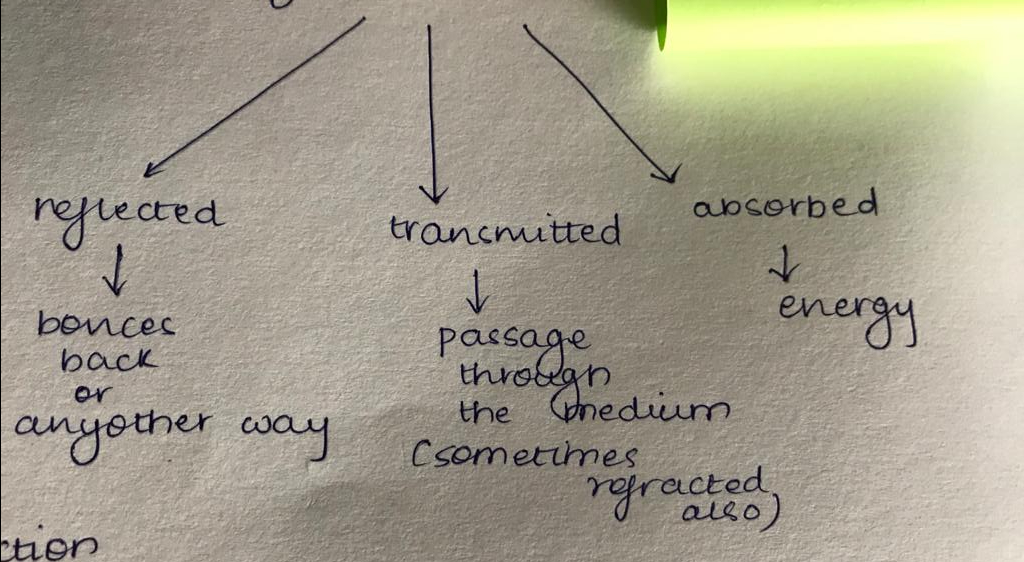 reflected
transmitted
absorbed
bonces
back
or
anyother way
passage
through
the medium
(sometimes
refracted
also)
energy
ction